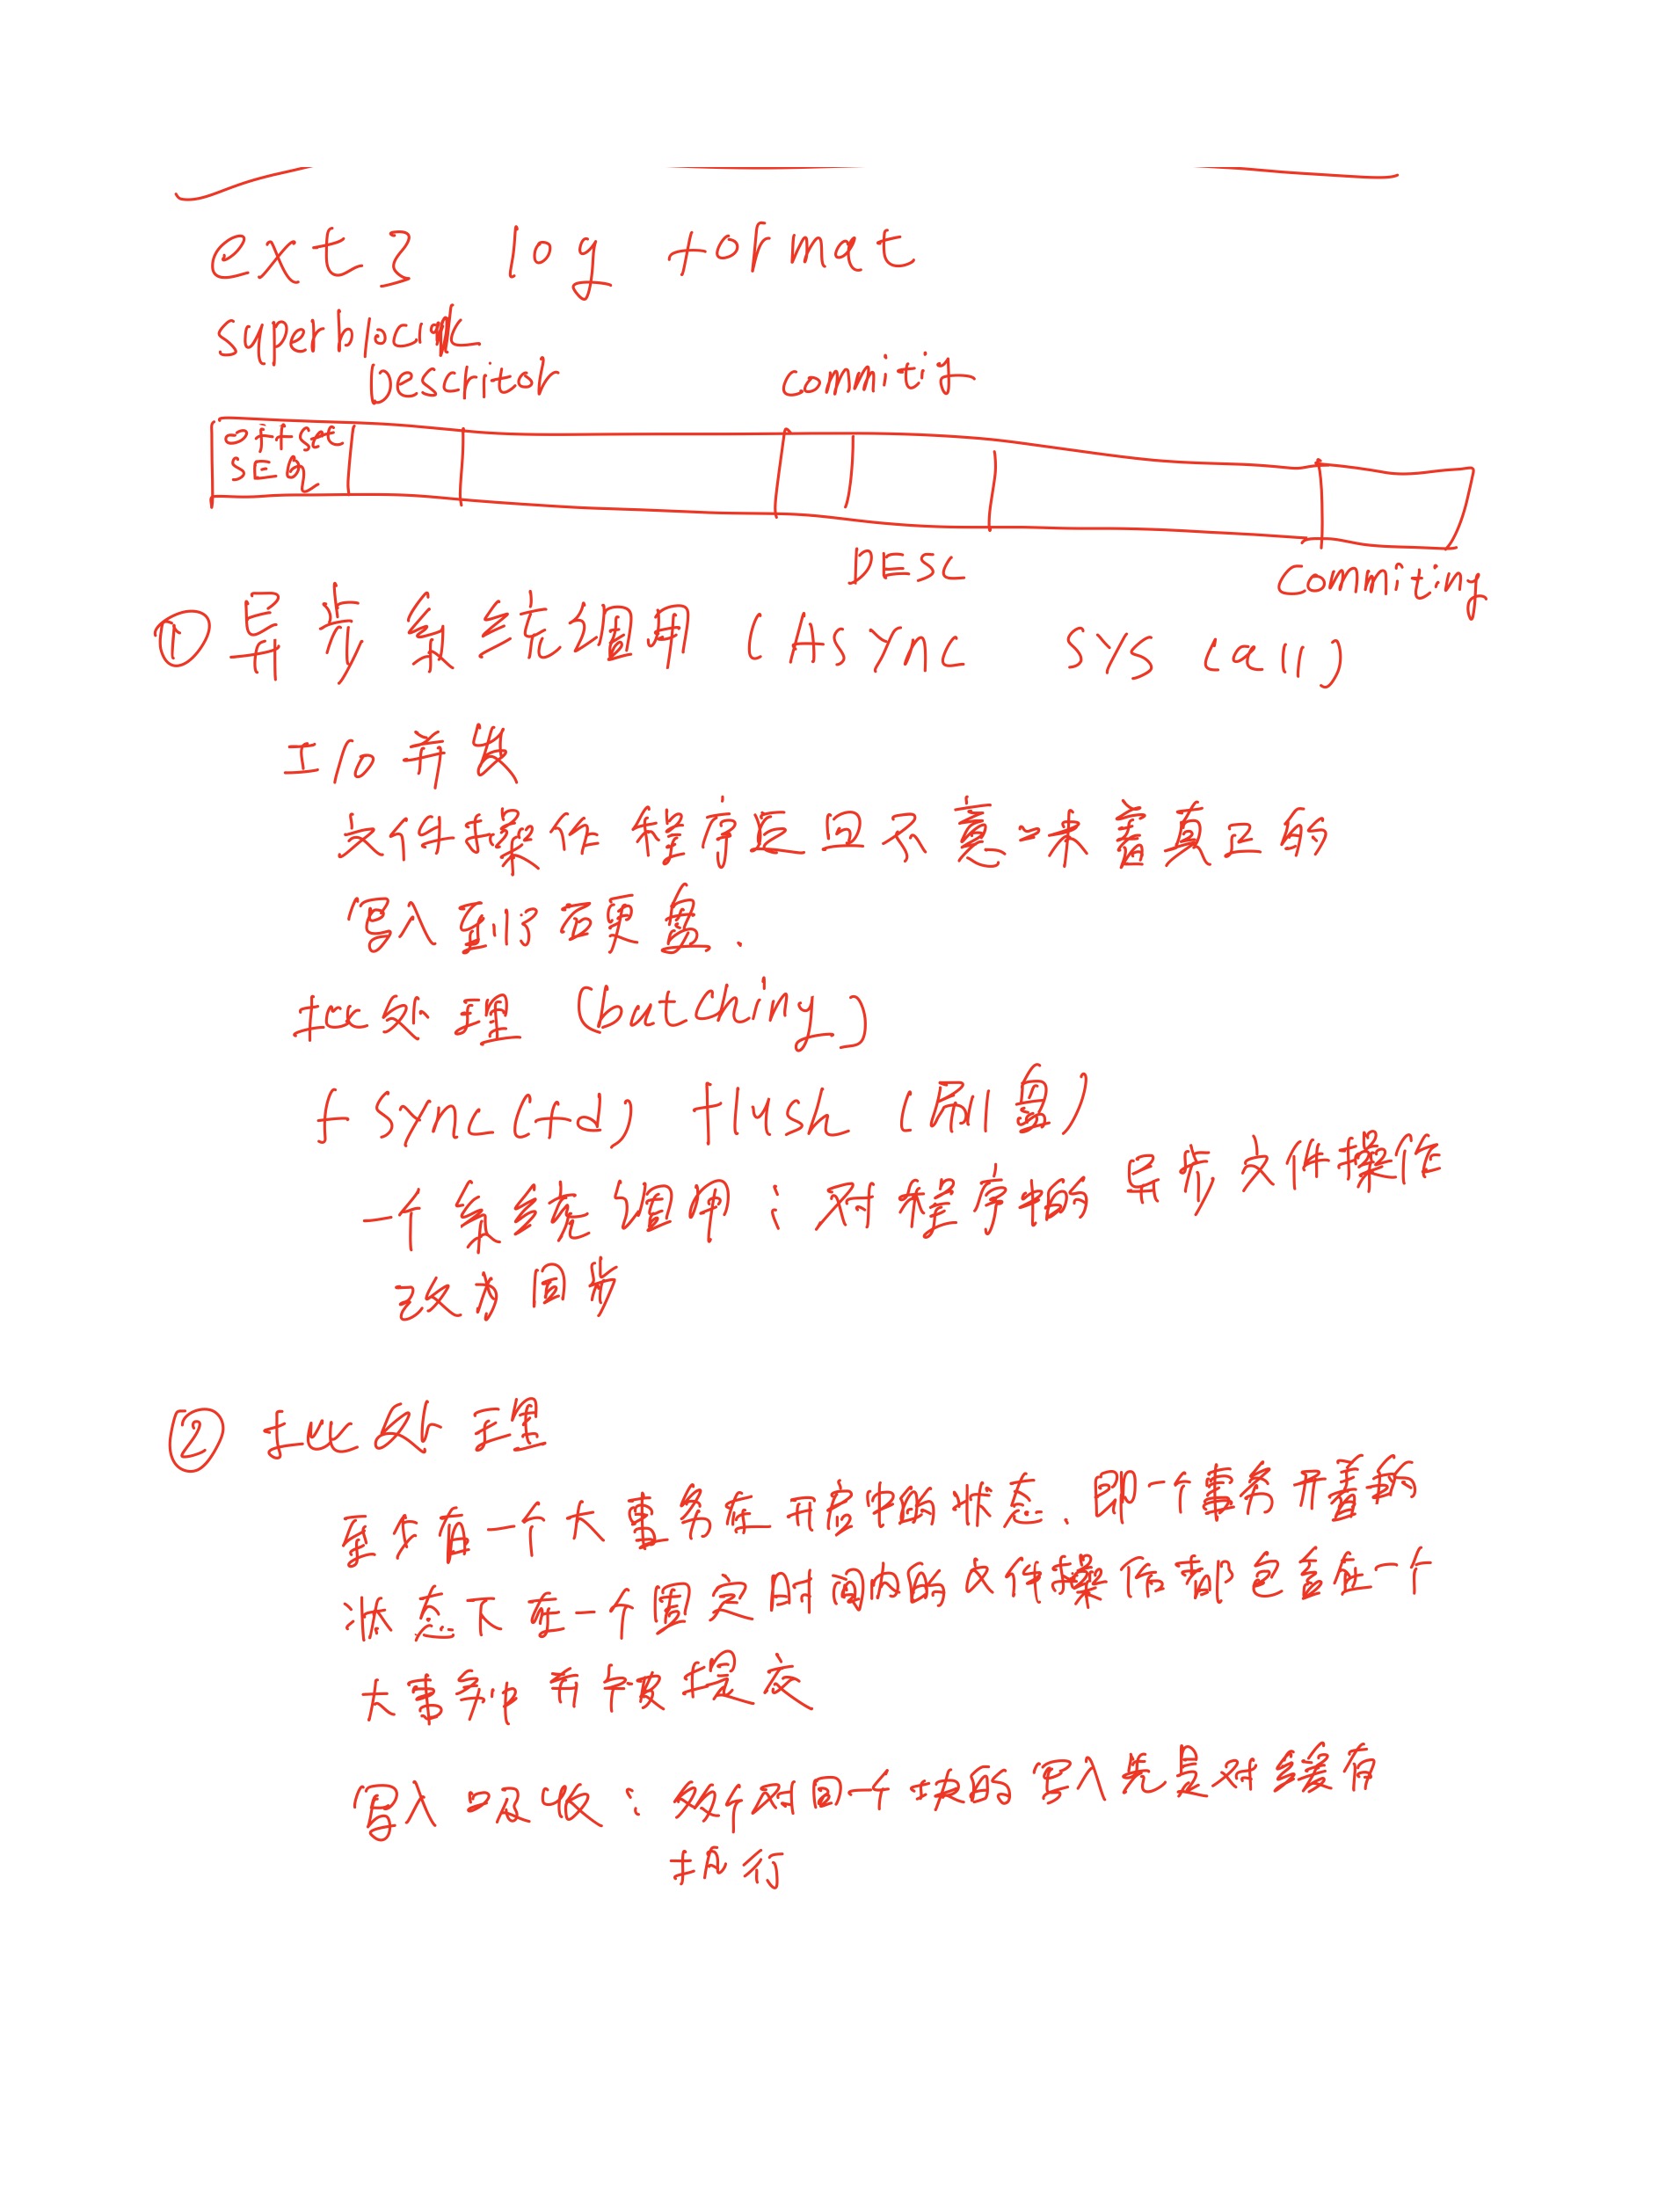 ext3 log format
superblock
Descritor
commitig
offset
SEQ
DESC
commiting
① 异步系统调用 (ASync SYS call)
I/O 并发
文件操作 程序返回不意味着真正的
写入到了硬盘.
批处理 (batching)
fsync(fd) flush (刷盘)
一个系统调用: 对程序中的异步文件操作
改为同步
② 批处理
至少有一个大事务在开启中的状态. 即一个事务开着的
状态下在一个固定时间内的文件操作都包含在一个
大事务中 并被提交
写入吸收: 多个对同一个块的写入先是对缓存
执行